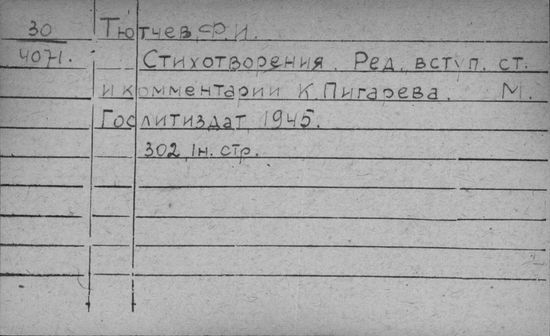 30 Тютчев, Ф. И.
4071. Стихотворения. Ред., вступ. ст.
и комментарии К. Пигарева. М.
Гослитиздат, 1945.
302, 1н. стр.